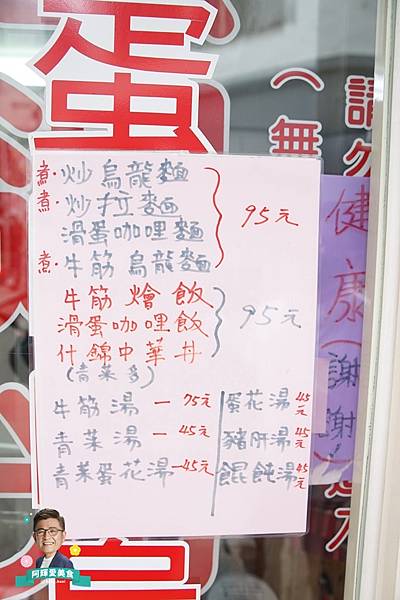 蛋
請勿
(無
健康
(謝謝
煮·炒烏龍麵
煮·炒拉麵
滑蛋咖哩麵
煮·牛筋烏龍麵
95元
牛筋燴飯
滑蛋咖哩飯
什錦中華丼
(青菜多)
95元
牛筋湯—75元
青菜湯—45元
青菜蛋花湯—45元
蛋花湯45元
豬肝湯45元
餛飩湯45元
阿輝愛美食